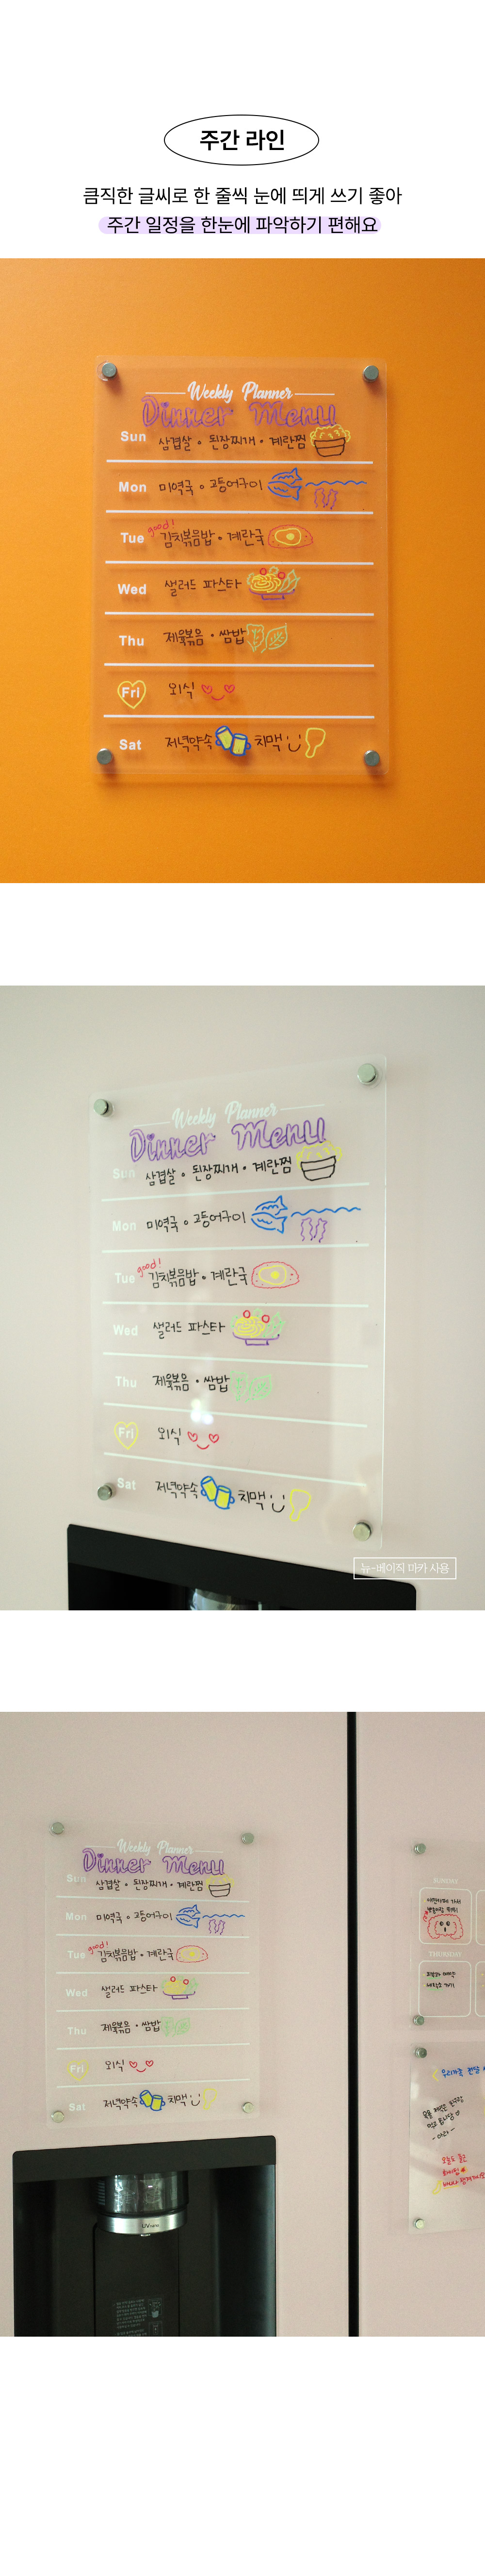 주간 라인
큼직한 글씨로 한 줄씩 눈에 띄게 쓰기 좋아
주간 일정을 한눈에 파악하기 편해요
Weekly Planner
Dinner Menu
Sun 삼겹살 · 된장찌개 · 계란찜
Mon 미역국 · 고등어구이
good!
Tue 김치볶음밥 · 계란국
Wed 샐러드 파스타
Thu 제육볶음 · 쌈밥
Fri 외식
Sat 저녁약속 치맥
Weekly Planner
Dinner Menu
Sun 삼겹살 · 된장찌개 · 계란찜
Mon 미역국 · 고등어구이
good!
Tue 김치볶음밥 · 계란국
Wed 샐러드 파스타
Thu 제육볶음 · 쌈밥
Fri 외식
Sat 저녁약속 치맥
뉴-베이직 마카 사용
Weekly Planner
Dinner Menu
Sun 삼겹살 · 된장찌개 · 계란찜
Mon 미역국 · 고등어구이
good!
Tue 김치볶음밥 · 계란국
Wed 샐러드 파스타
Thu 제육볶음 · 쌈밥
Fri 외식
Sat 저녁약속 치맥
UV
SUNDAY
THURSDAY